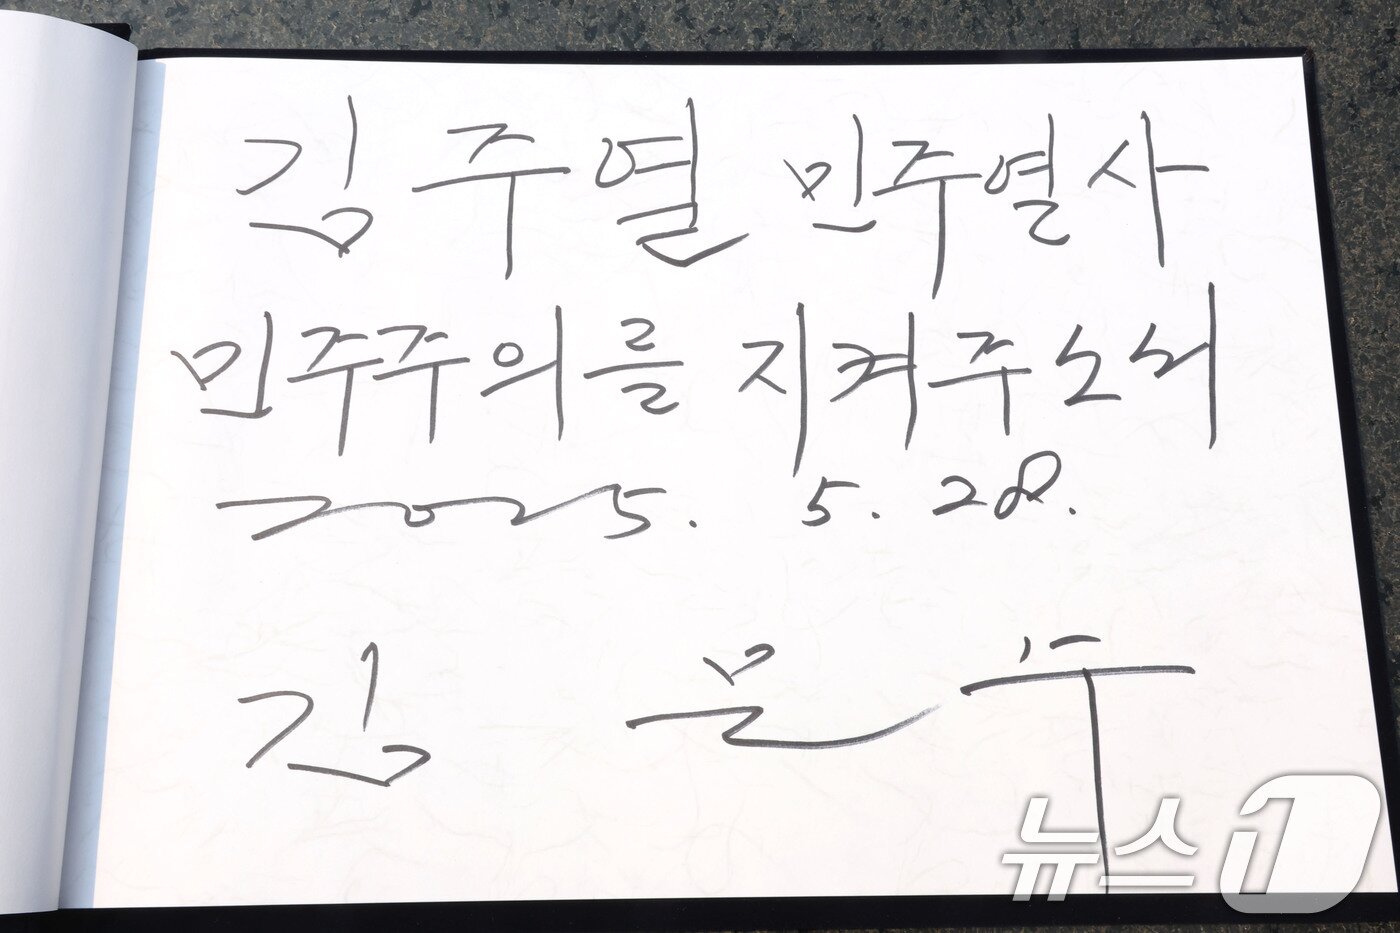 김주열 민주열사
민주주의를 지켜주소서
2025. 5. 28.
김 문 수
뉴스1